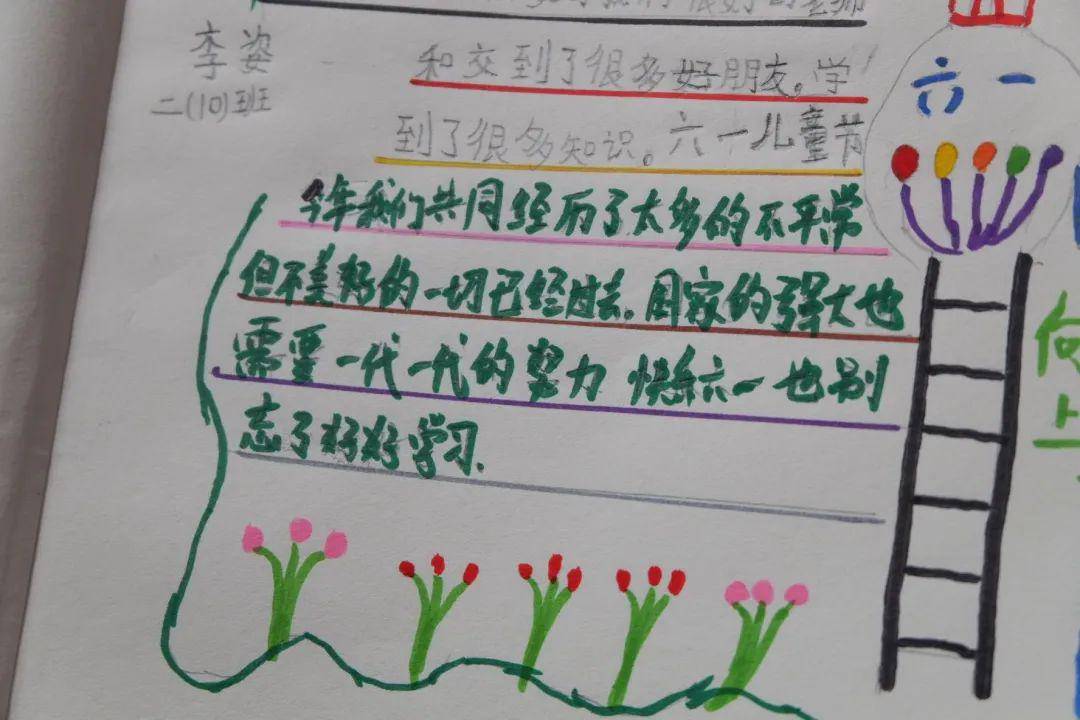 很好的老师
李姿
二(10)班
和交到了很多好朋友。学
到了很多知识。六一儿童节
今年我们共同经历了太多的不平常
但不美好的一切已经过去.国家的强大也
需要一代一代的努力 快乐六一也别
忘了好好学习.
六一
向
上